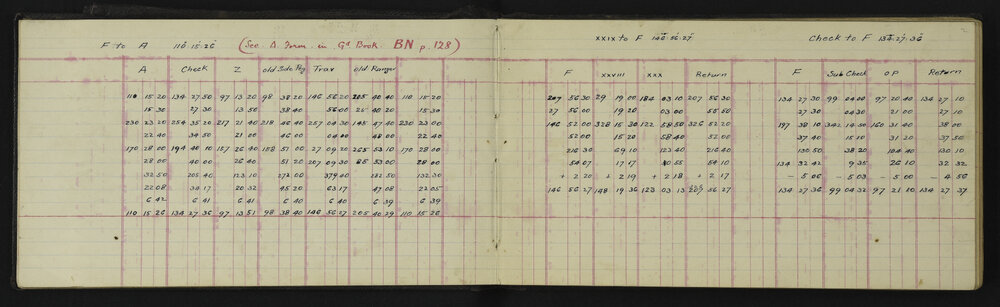 F to A 110.15.26 (See Δ Form in Gd Book BN p.128)
A Check Z Old Side Peg Trav Old Ranger
110 15 20 134 27 50 97 13 20 98 38 20 146 56 20 205 40 40 110 15 20
15 30 27 30 13 50 38 40 56 00 25 40 20 15 30
230 23 20 254 35 20 217 21 40 218 46 40 257 04 30 145 47 40 230 23 00
22 40 34 50 21 00 46 00 04 00 48 00 22 40
170 28 00 194 40 10 157 26 40 158 51 00 27 09 20 265 53 10 170 28 00
28 00 40 00 26 40 51 20 207 09 30 85 53 00 28 00
32 50 205 40 123 10 272 00 379 40 282 50 132 30
22 08 34 17 20 32 45 20 63 17 47 08 22 05
6 42 6 41 6 41 6 40 6 40 6 39 6 39
110 15 26 134 27 36 97 13 51 98 38 40 146 56 27 205 40 29 110 15 26
XXIX to F 146.56.27 Check to F 134.27.36
F XXVIII XXX Return F Sub Check OP Return
207 56 30 29 19 00 184 03 10 207 56 30 134 27 30 99 04 00 97 20 40 134 27 10
27 56 00 19 20 03 00 55 50 27 30 04 30 21 00 27 10
146 52 00 328 15 30 122 58 50 326 52 20 197 38 10 342 14 40 160 31 40 38 00
52 00 15 20 58 40 52 00 37 40 15 10 31 20 37 50
216 30 69 10 123 40 216 40 130 50 38 20 104 40 130 10
54 07 17 17 40 55 54 10 134 32 42 9 35 26 10 32 32
+ 2 20 + 2 19 + 2 18 + 2 17 - 5 06 - 5 03 - 5 00 - 4 56
146 56 27 148 19 36 123 03 13 207 56 27 134 27 36 99 04 32 97 21 10 134 27 37